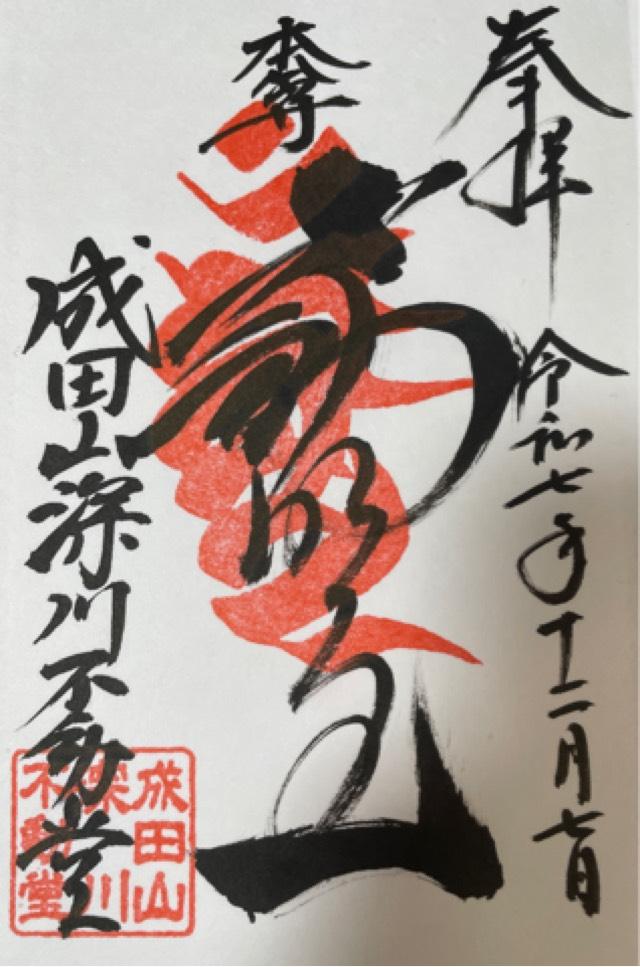 奉拝
令和七年十二月七日
本尊
不動明王
成田山深川不動堂
成田山
深川
不動堂